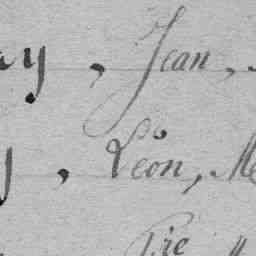 ay, Jean,
y, Léon, M